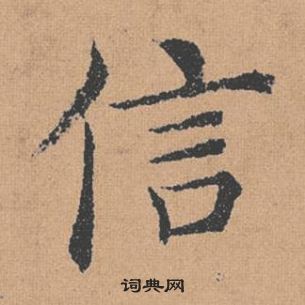 信
词典网